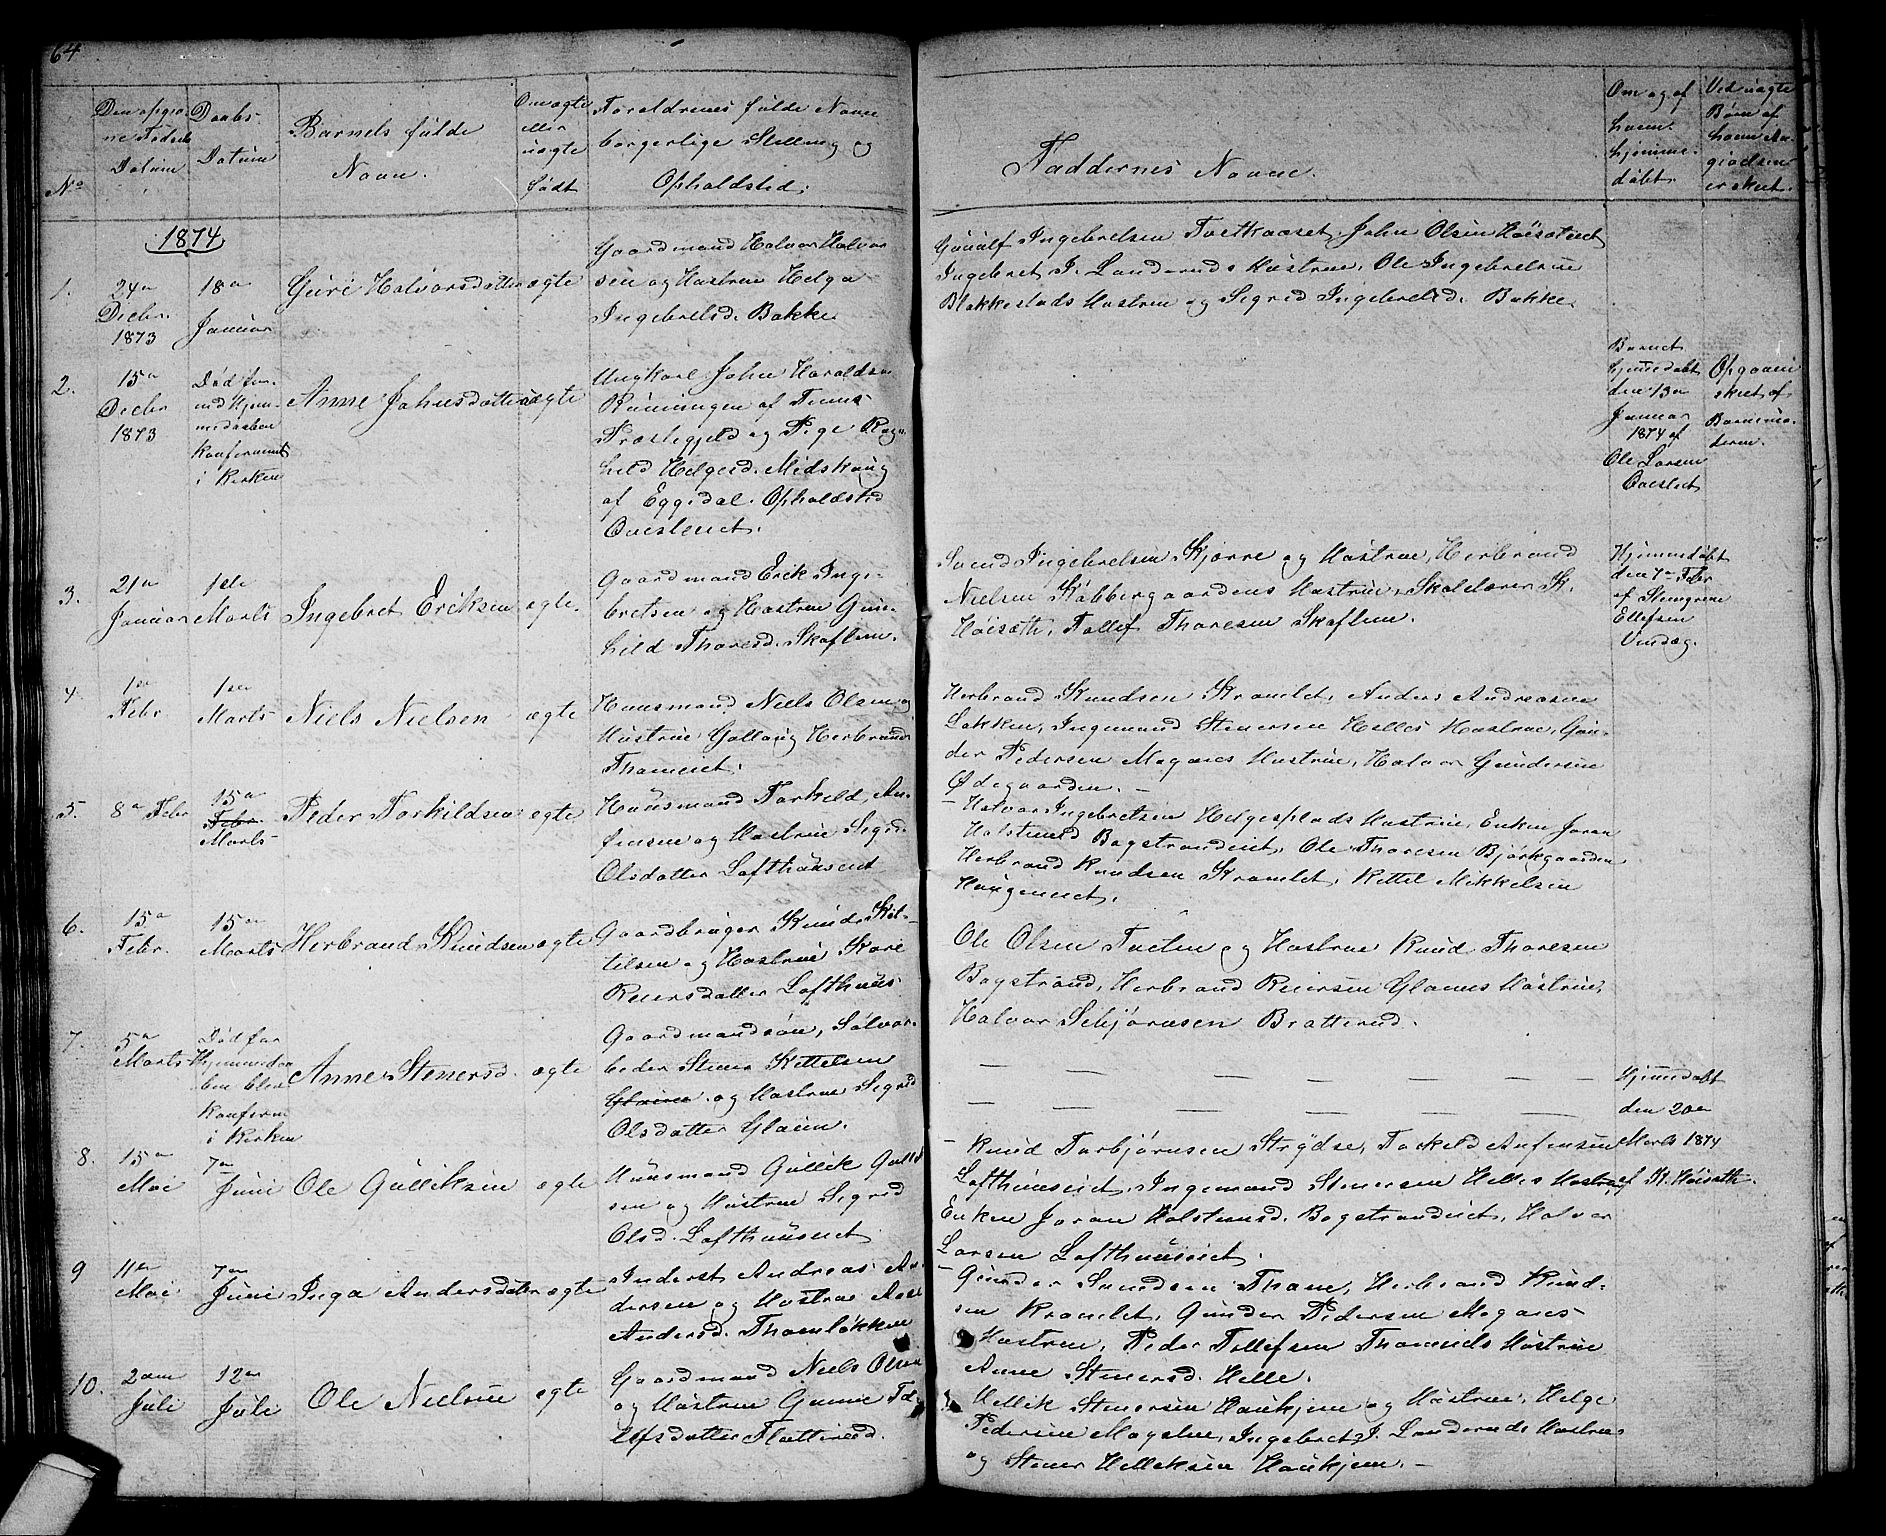 64
No
Den opgivne Fødsels Datum
Daabs Datum
Barnets fulde Navn.
Om ægte eller uægte født
Forældrenes fulde Navne borgerlige Stilling og Opholdsted.
Faddernes Navne.
Om og af hvem hjemmedøbt.
Ved uægte Børn af hvem Angivelsen er skeet.
1874
1.
24a Decbr. 1873
18a Januar
Guri Halvorsdatter
ægte
Gaardmand Halvor Halvor
sen og Hustrue Helga
Ingebretsd. Bakke
Ingebretsen Tveitkaaset, John Olsen Høisætret
Ingebret I. Landeruds Hustrue, Ole Ingebretsen
Blakkestads Hustrue og Segrid Ingebretsd. Bakke.
2.
15a Decbr 1873
Død før
i Kirken
Anne Johnsdatter
uægte
Ungkarl John Haraldsen
Rønningen af
Præstegjeld og Pige Ragn
hild Helgesd. Midskoug
af Eggedal. Opholdsted
Barnet
hjemmedøbt
den 13a
Januar
1874 af
Ole Larsen
Opgaven
skeet af
Barnemo-
deren.
3.
21a Januar
1ste Marts
Ingebret Eriksen
ægte.
Gaardmand Erik Inge-
bretsen og Hustrue Gun-
hild Thoresd. Skaflem.
Svend Ingebretsen Skjørre og Hustrue, Herbrand
Nielsen Kobbergaardens Hustrue, Skolelærer K.
Høisæth, Tollef Thoresen Skaflem.
Hjemmedøbt
den 7a Febr
af Steingrim
Ellefsen
4.
1a Febr
1ste Marts
Niels Nielsen
ægte
Huusmand Niels Olsen og
Hustrue Gollaug Herbrandsd
Thameiet.
Herbrand Knudsen Kramlet, Anders Andreasen
Løkken, Ingemund Stenersen Helles Hustrue, Gun-
der Pedersen Magaas Hustrue, Halvor Gundersen
Ødegaarden. -
5.
8a Febr
15a Febr. Marts
Peder Torkildsen
ægte
Huusmand Torkild An-
finsen og Hustrue Segri
Olsdatter Lofthuuseiet
- Halvor Ingebretsen Helgesplads Hustrue, Enken Joran
Holstensd Bagstrandeiet, Ole Thoresen Bjørkgaarden
Herbrand Knudsen Kramlet, Kittel Mikkelsen
Haugeneiet.
6.
15a Febr.
15a Marts
Herbrand Knudsen
ægte
Gaardbruger Knud Kit-
tilsen og Hustrue Kare
Reiersdatter Lofthuus
Ole Olsen og Hustrue Knud Thoresen
Bagstrand, Herbrand Reiersen Glaims Hustrue,
Halvor Schjønsen Bratterud.
7.
5a Marts
Død før
Hjemmedaa
ben blev
Konferm
i Kirken
Anne Stenersd.
ægte
Gaardmandsøn, Selvar-
beder Stener Kittelsen
Glaim og Hustrue Segrid
Olsdatter Glaim.
Hjemmedøbt
den 20a
Marts 1874
af K. Høisæth.
8.
15a Mai
7a Juni
Ole Gulliksen
ægte
Huusmand Gullik Gullik
sen og Hustrue Segrid
Olsd. Lofthuuseiet
- Knud Torbjørnsen Strydse, Torkeld Anfensen
Lofthuuseiet, Ingemund Stenersen Helles Hustrue,
Enken Joran Holstensd. Bagstrandeiet, Halvor
Larsen Lofthuuseiet.
9
11a Mai
7a Juni
Inga Andersdatter
ægte
Inderst Andreas An
dersen og Hustrue Aase
Andersd. Thamløkken
- Gunder Svendsen Thame, Herbrand Knud-
sen Kramlet, Gunder Pedersen Magaas
Hustrue, Peder Tollefsen Thameids Hustrue
Anne Stenersd. Helle.
10.
2den Juli
12a Juli
Ole Nielsen
ægte
Gaardmand Niels Olsen
og Hustrue Gunne Tol-
lefsdatter Flatterud.
Hellik Stenersen Haukjem og Hustrue, Helge
Pedersen Magslie, Ingebret I. Landeruds Hustrue
og Stener Helleksen Haukjem. -